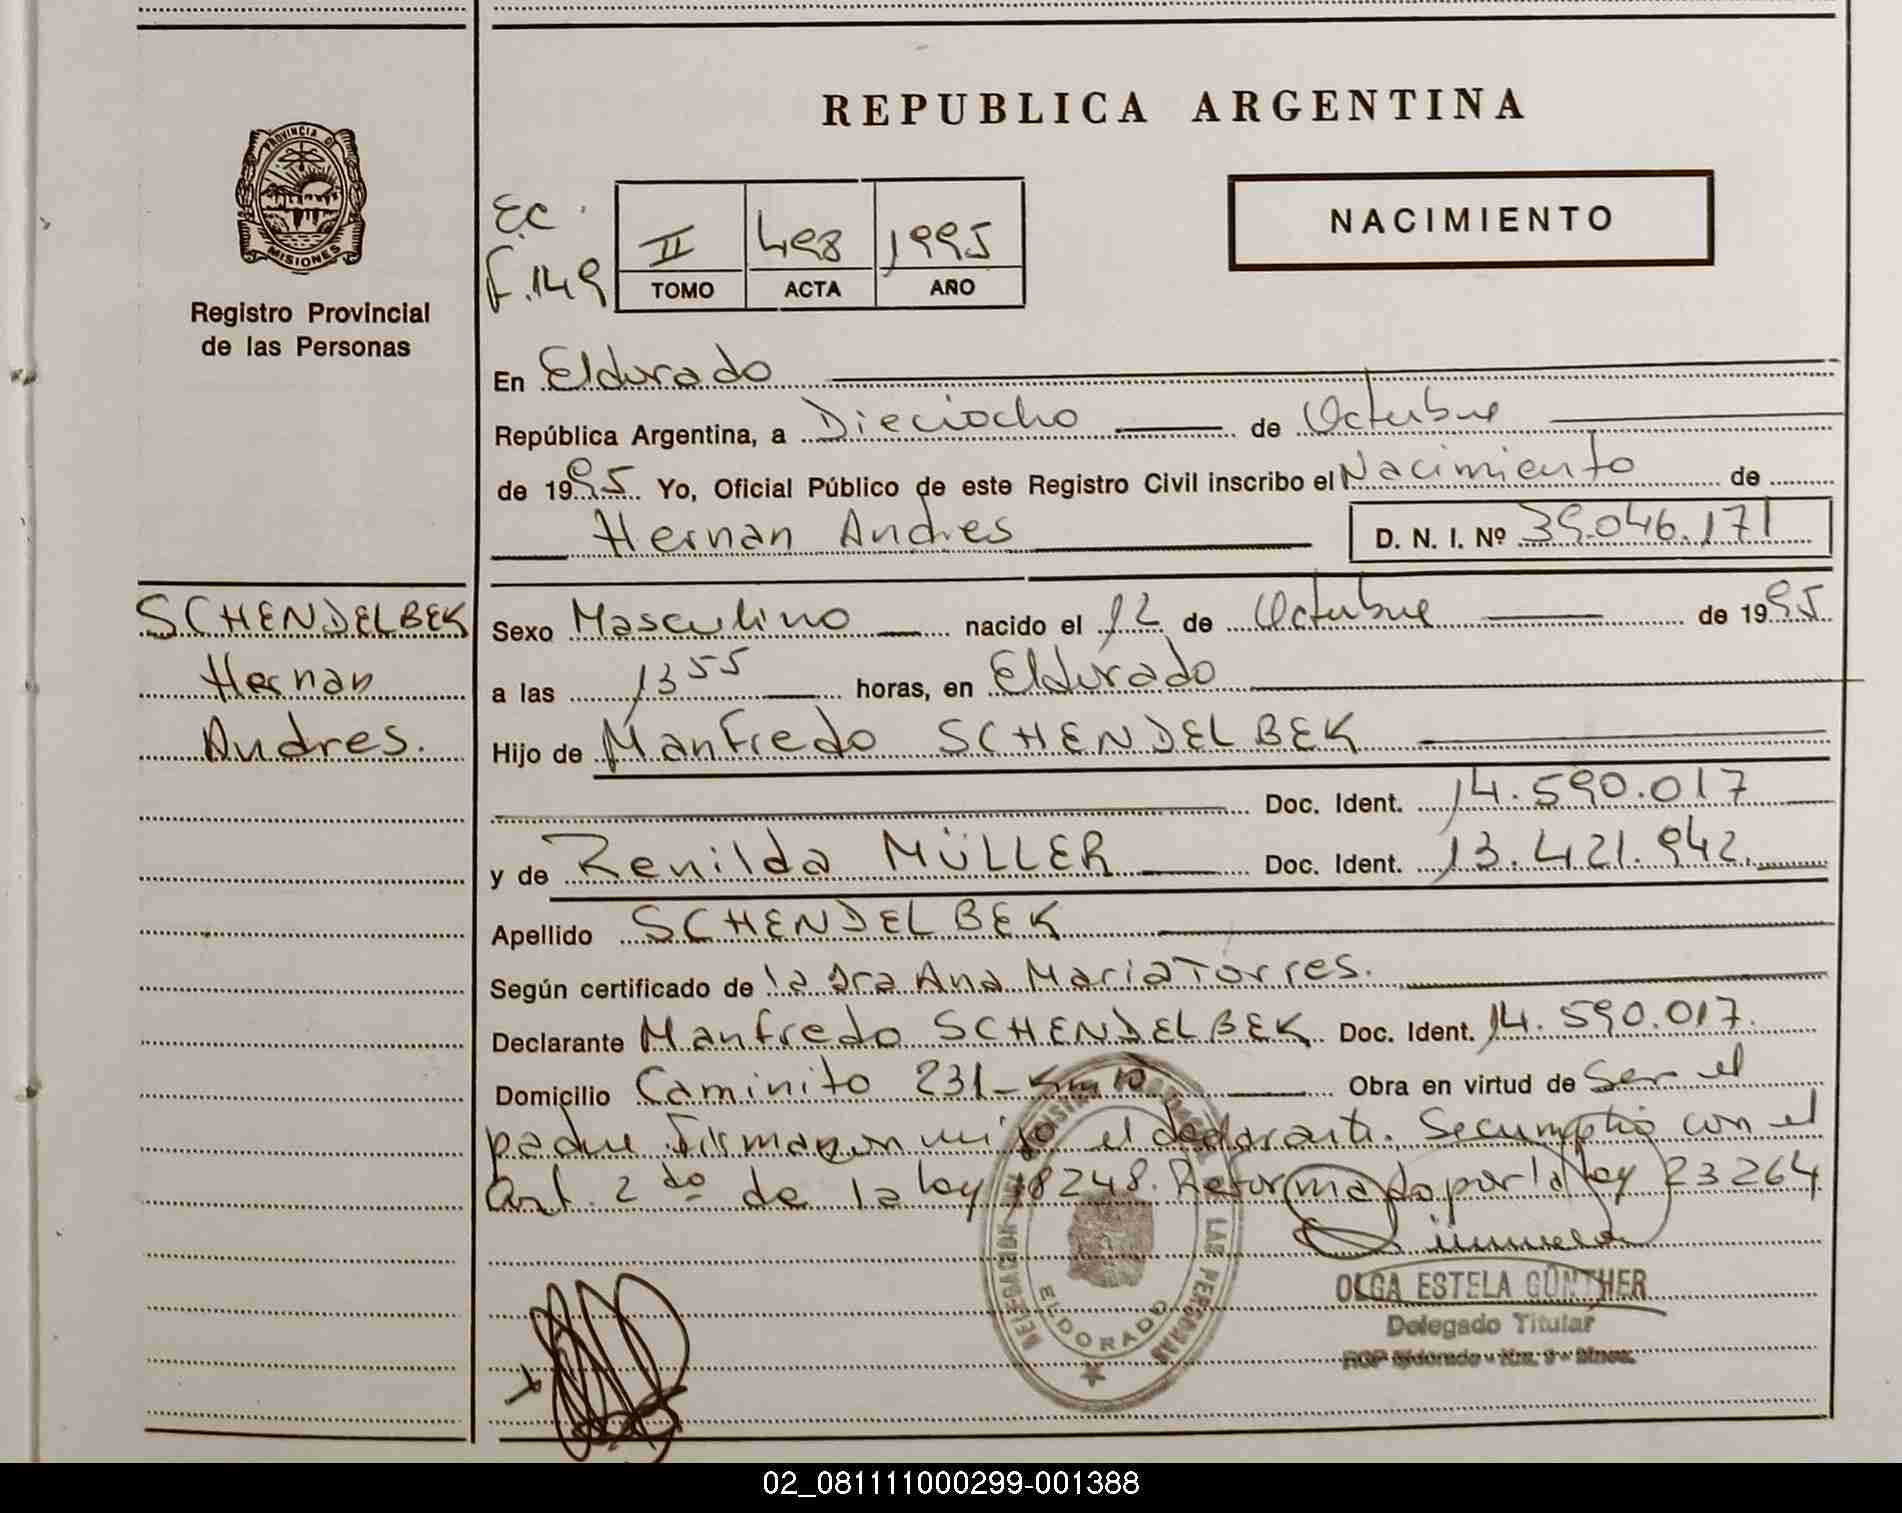 REPUBLICA ARGENTINA
PROVINCIA DE
MISIONES
Registro Provincial
de las Personas
E.C.
F. 149
II 498 1995
TOMO ACTA AÑO
NACIMIENTO
En Eldorado
República Argentina, a Dieciocho de Octubre
de 1995 Yo, Oficial Público de este Registro Civil inscribo el Nacimiento de
Hernan Andres D. N. I. Nº 39.046.171
SCHENDELBEK
Hernan
Andres.
Sexo Masculino nacido el 12 de Octubre de 1995
a las 13 55 horas, en Eldorado
Hijo de Manfredo SCHENDELBEK
Doc. Ident. 14.590.017
y de Renilda MÜLLER Doc. Ident. 13.421.942.
Apellido SCHENDELBEK
Según certificado de la Dra Ana Maria Torres.
Declarante Manfredo SCHENDELBEK Doc. Ident. 14.590.017.
Domicilio Caminito 231 - Km 10 Obra en virtud de Ser el
padre firman con migo el declarante. Se cumplio con el
art. 2do de la ley 18248. Reformado por la ley 23264
DELEGACION LAS PERSONAS
ELDORADO
OLGA ESTELA GÜNTHER
Delegado Titular
RGP Eldorado - Km. 9 - Mnes.
02_081111000299-001388